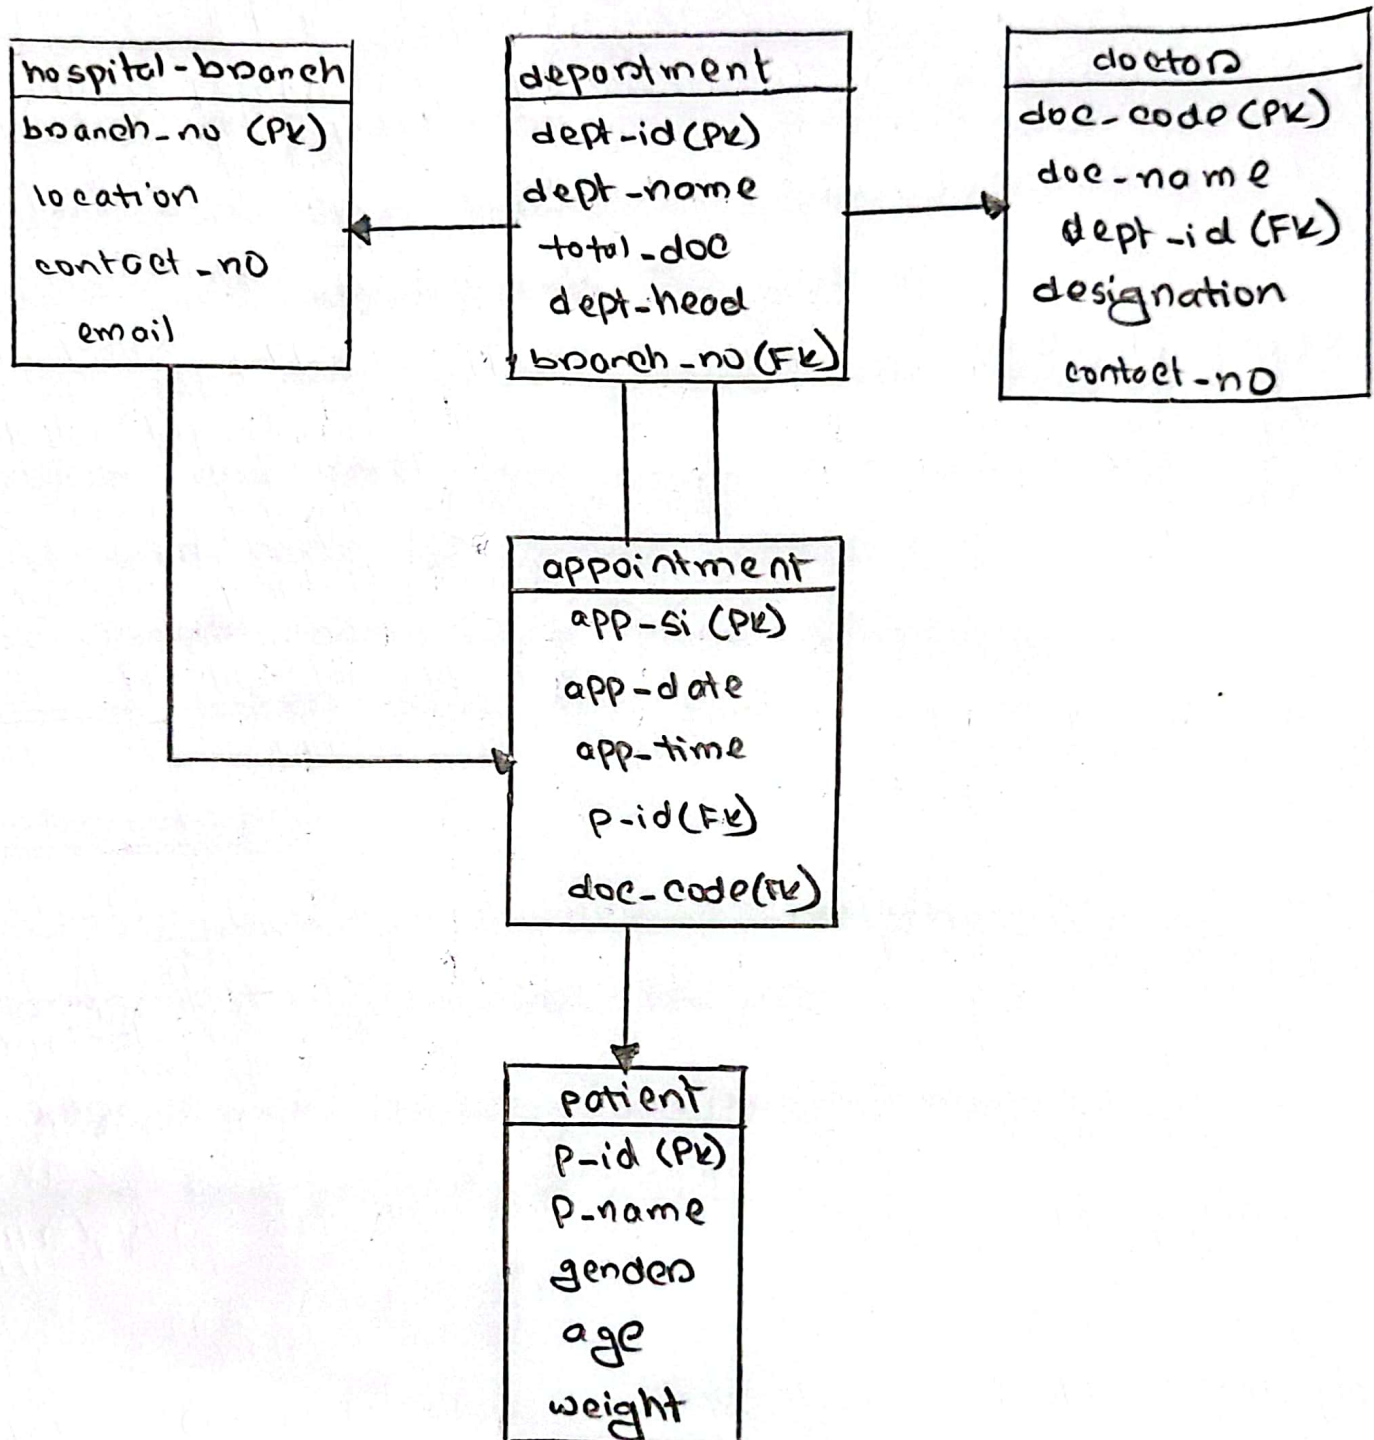 hospital-branch
branch_no (PK)
location
contact_no
email
department
dept-id (PK)
dept-name
total_doc
dept-head
branch_no (FK)
doctor
doc-code (PK)
doc-name
dept-id (FK)
designation
contact-no
appointment
app-si (PK)
app-date
app-time
p-id (FK)
doc-code (FK)
patient
p-id (PK)
p-name
gender
age
weight